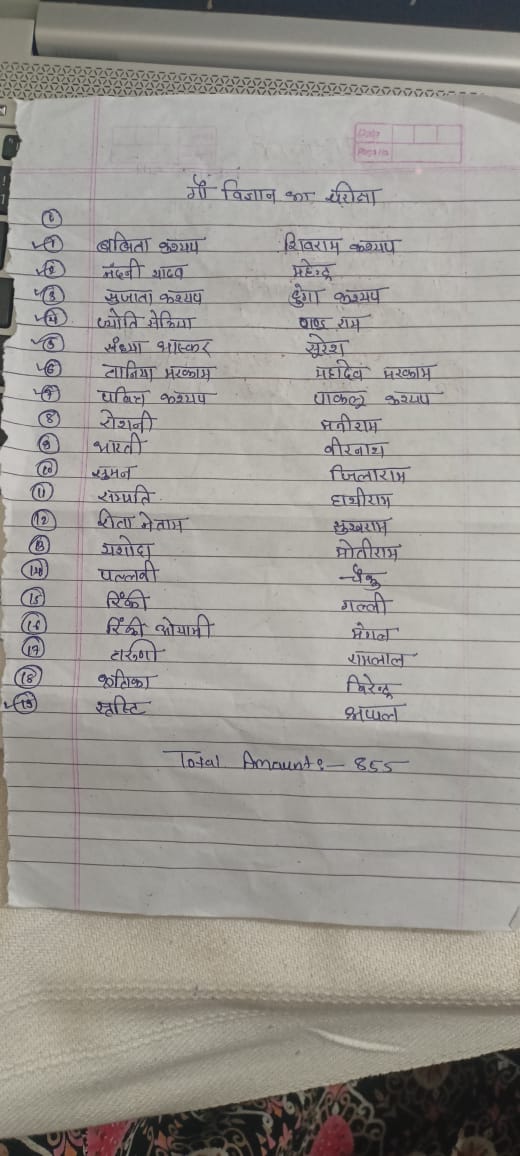 Date
Page No
गौ विज्ञान का परीक्षा
1 बबिता कश्यप शिवराम कश्यप
2 नंदनी यादव महेन्द्र
3 सुजाता कश्यप दुर्गा कश्यप
4 ज्योति सेठिया राम
5 संध्या भास्कर सुरेश
6 तानिया मरकाम महादेव मरकाम
7 पवित्र कश्यप पाकलू कश्यप
8 रोशनी मनीराम
9 भारती वीरनाथ
10 सुमन जिलाराम
11 सम्पति हाथीराम
12 रीता नेताम सुखराम
13 यशोदा मोतीराम
14 पल्लवी चैतु
15 रिंकी गल्ली
16 रिंकी ओयामी मंगल
17 तरूणी रामलाल
18 बिरेन्द्र
19 सृष्टि श्रीपाल
Total Amaunt :- 855